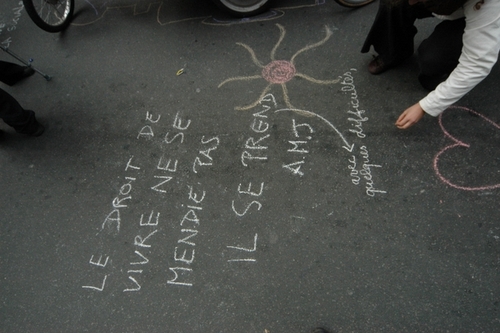 LE DROIT DE
VIVRE NE SE
MENDIE PAS
IL SE PREND
A.M.J
avec
quelques difficultés